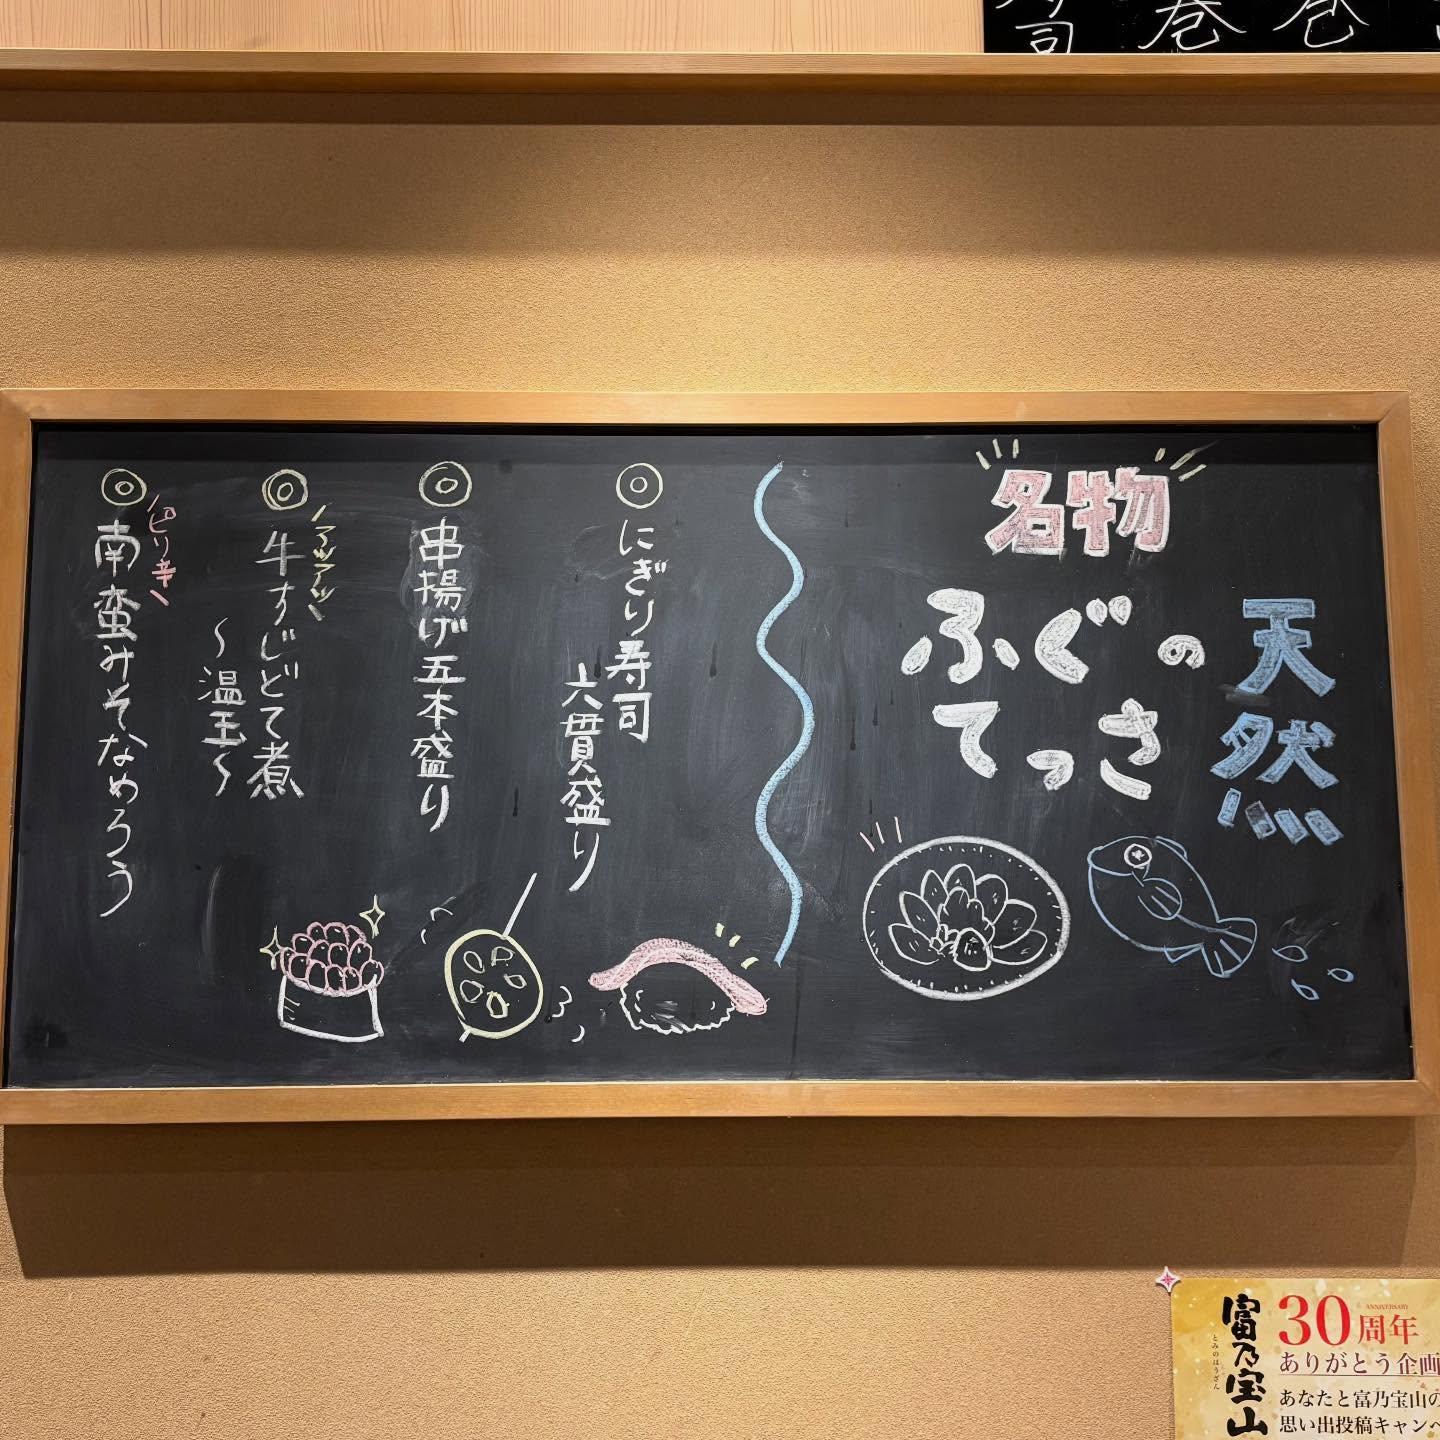 名物
天然
ふぐの
てっさ
◎にぎり寿司
六貫盛り
◎串揚げ五本盛り
アツアツ
◎牛すじどて煮
〜温玉〜
ピリ辛
◎南蛮みそなめろう
司
巻
巻
富乃宝山
とみのほうざん
ANNIVERSARY
30周年
ありがとう企画
あなたと富乃宝山の
思い出投稿キャンペ